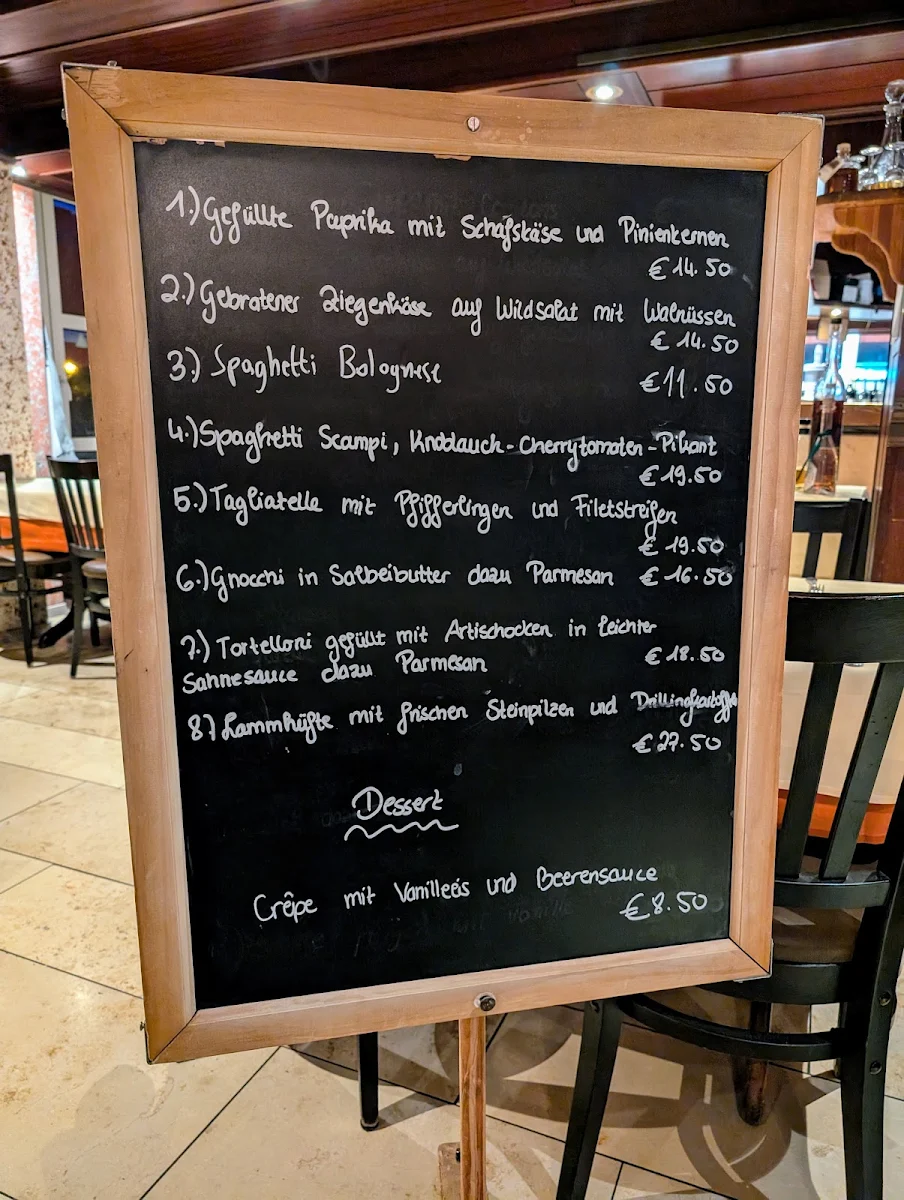 1.) Gefüllte Paprika mit Schafskäse und Pinienkernen
€ 14.50
2.) Gebratener Ziegenkäse auf Wildsalat mit Walnüssen
€ 14.50
3.) Spaghetti Bolognese €11.50
4.) Spaghetti Scampi, Knoblauch-Cherrytomaten-Pikant
€ 19.50
5.) Tagliatelle mit Pfifferlingen und Filetstreifen
€ 19.50
6.) Gnocchi in Salbeibutter dazu Parmesan € 16.50
7.) Tortelloni gefüllt mit Artischocken in leichter
Sahnesauce dazu Parmesan € 18.50
8) Lammhüfte mit frischen Steinpilzen und Drillingkartoffeln
€ 27.50
Dessert
Crêpe mit Vanilleeis und Beerensauce
€ 8.50